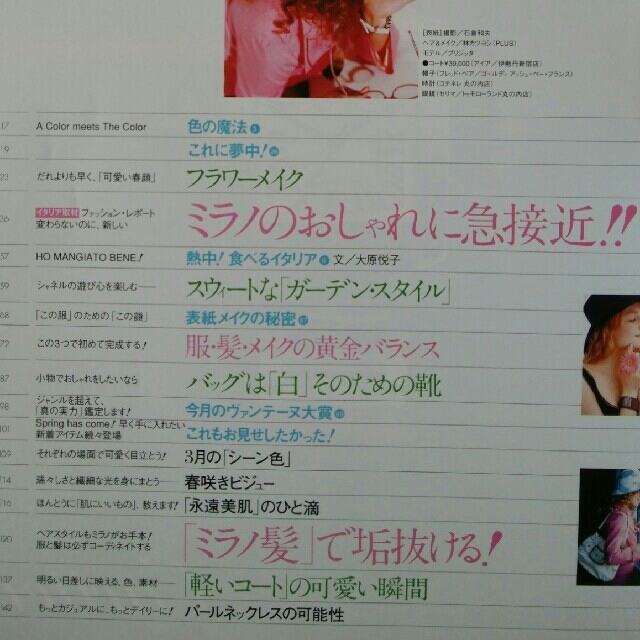 [表紙]撮影/石倉和夫
ヘア&メイク/林カツヨシ(PLUS)
モデル/ブリジッタ
●コート¥39,000(アイア/伊勢丹新宿店)
帽子(フレッド・ベア/ゴールデ アッシュ・ペー・フランス)
時計(コチネレ 丸の内店)
眼鏡(セリマ/トゥモローランド丸の内店)
17 A Color meets The Color 色の魔法
19 これに夢中!
23 だれよりも早く、「可愛い春顔」 フラワーメイク
36 イタリア取材 ファッション・レポート
変わらないのに、新しい ミラノのおしゃれに急接近!!
57 HO MANGIATO BENE! 熱中! 食べるイタリア 文/大原悦子
59 シャネルの遊び心を楽しむ── スウィートな「ガーデン・スタイル」
68 「この服」のための「この顔」 表紙メイクの秘密
72 この3つで初めて完成する! 服・髪・メイクの黄金バランス
87 小物でおしゃれをしたいなら バッグは「白」そのための靴
98 ジャンルを超えて、
「真の実力」鑑定します! 今月のヴァンテーヌ大賞
101 Spring has come! 早く手に入れたい
新着アイテム続々登場 これもお見せしたかった!
109 それぞれの場面で可愛く目立とう! 3月の「シーン色」
114 瑞々しさと繊細な光を身にまとう── 春咲きビジュー
116 ほんとうに「肌にいいもの」、教えます! 「永遠美肌」のひと滴
120 ヘアスタイルもミラノがお手本!
服と髪は必ずコーディネイトする 「ミラノ髪」で垢抜ける!
137 明るい日差しに映える、色、素材── 「軽いコート」の可愛い瞬間
142 もっとカジュアルに、もっとデイリーに! パールネックレスの可能性